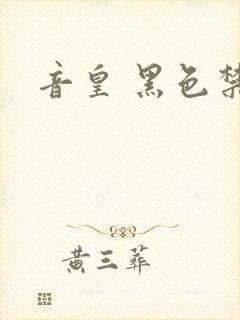 音皇 黑色禁
黄三葬